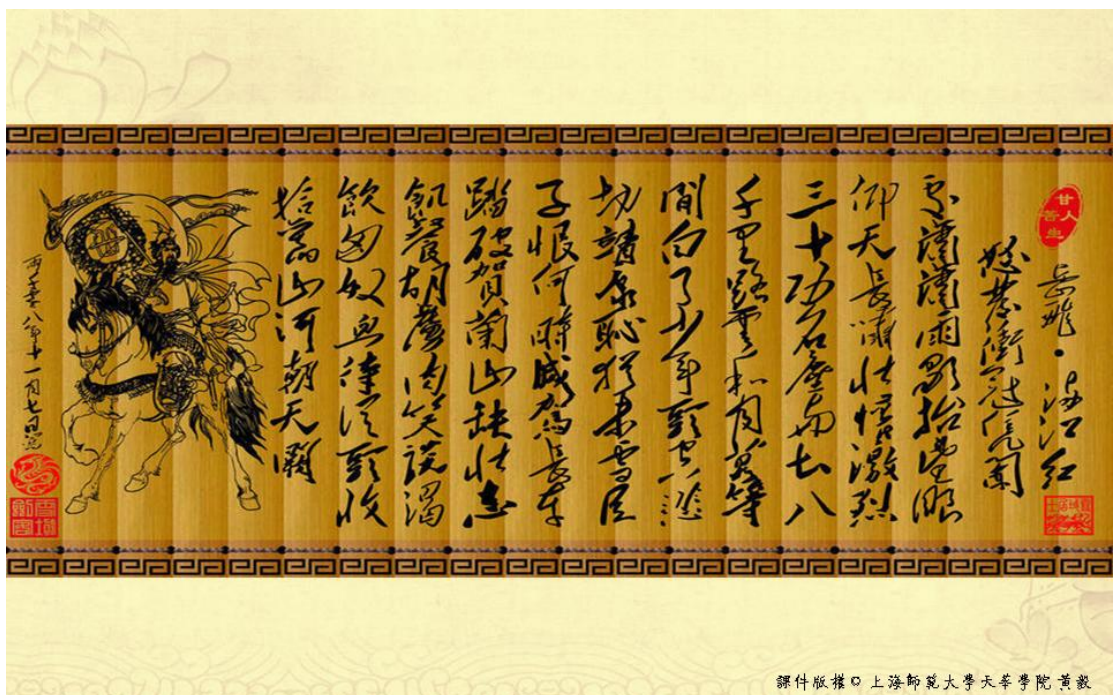 岳飛·满江红
怒髮衝冠凭闌
處瀟瀟雨歇抬望眼
仰天長嘯壯懷激烈
三十功名塵與土八
千里路雲和月莫等
閒白了少年頭空悲
切靖康恥猶未雪臣
子恨何時滅駕長車
踏破賀蘭山缺壯志
飢餐胡虜肉笑談渴
飲匈奴血待從頭收
拾舊山河朝天闕
八年十一月七日
甘苦人生
課件版權© 上海師範大學天華學院 黃毅